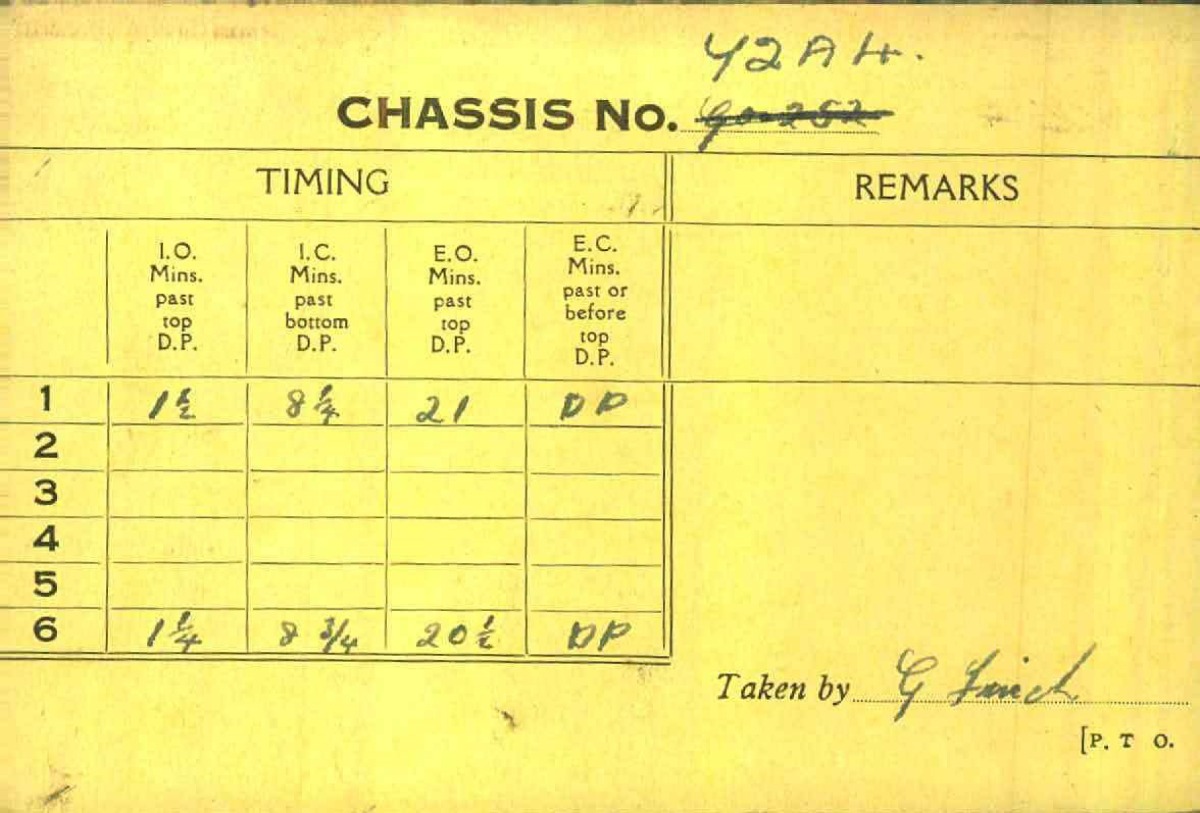 42AH.
CHASSIS No. 90-252
TIMING
REMARKS
I.O. Mins. past top D.P.
I.C. Mins. past bottom D.P.
E.O. Mins. past top D.P.
E.C. Mins. past or before top D.P.
1 1½ 8¼ 21 DP
2
3
4
5
6 1¼ 8 3/4 20½ DP
Taken by G Finch
[P. T O.